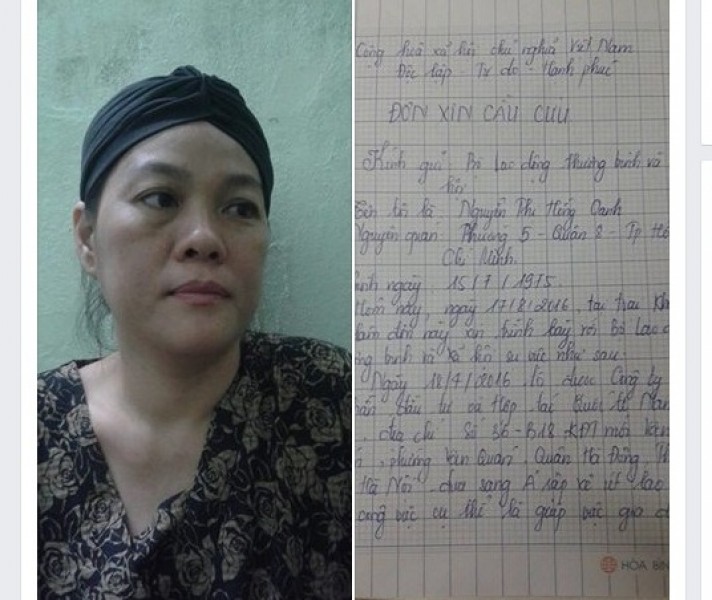 Cộng hoà xã hội chủ nghĩa Việt Nam
Độc lập - Tự do - Hạnh phúc
ĐƠN XIN CẦU CỨU
Kính gửi : Bộ Lao động thương binh và
hội
tôi là : Nguyễn Thị Hồng Oanh
Nguyên quán : Phường 5 - Quận 8 - Tp Hồ
Chí Minh.
ngày 15/7/1975.
Hôm nay, ngày 17/8/2016, tại trại
làm đơn này xin trình bày với Bộ Lao
binh và xã hội sự việc như sau:
Ngày 18/4/2016 tôi được Công ty
Đầu tư và Hợp tác Quốc tế Nam
, địa chỉ Số B18 KĐT mới Văn
, phường Văn Quán, Quận Hà Đông,
Hà Nội. đưa sang Ả rập xê út lao
công việc cụ thể là giúp việc gia
HÒA